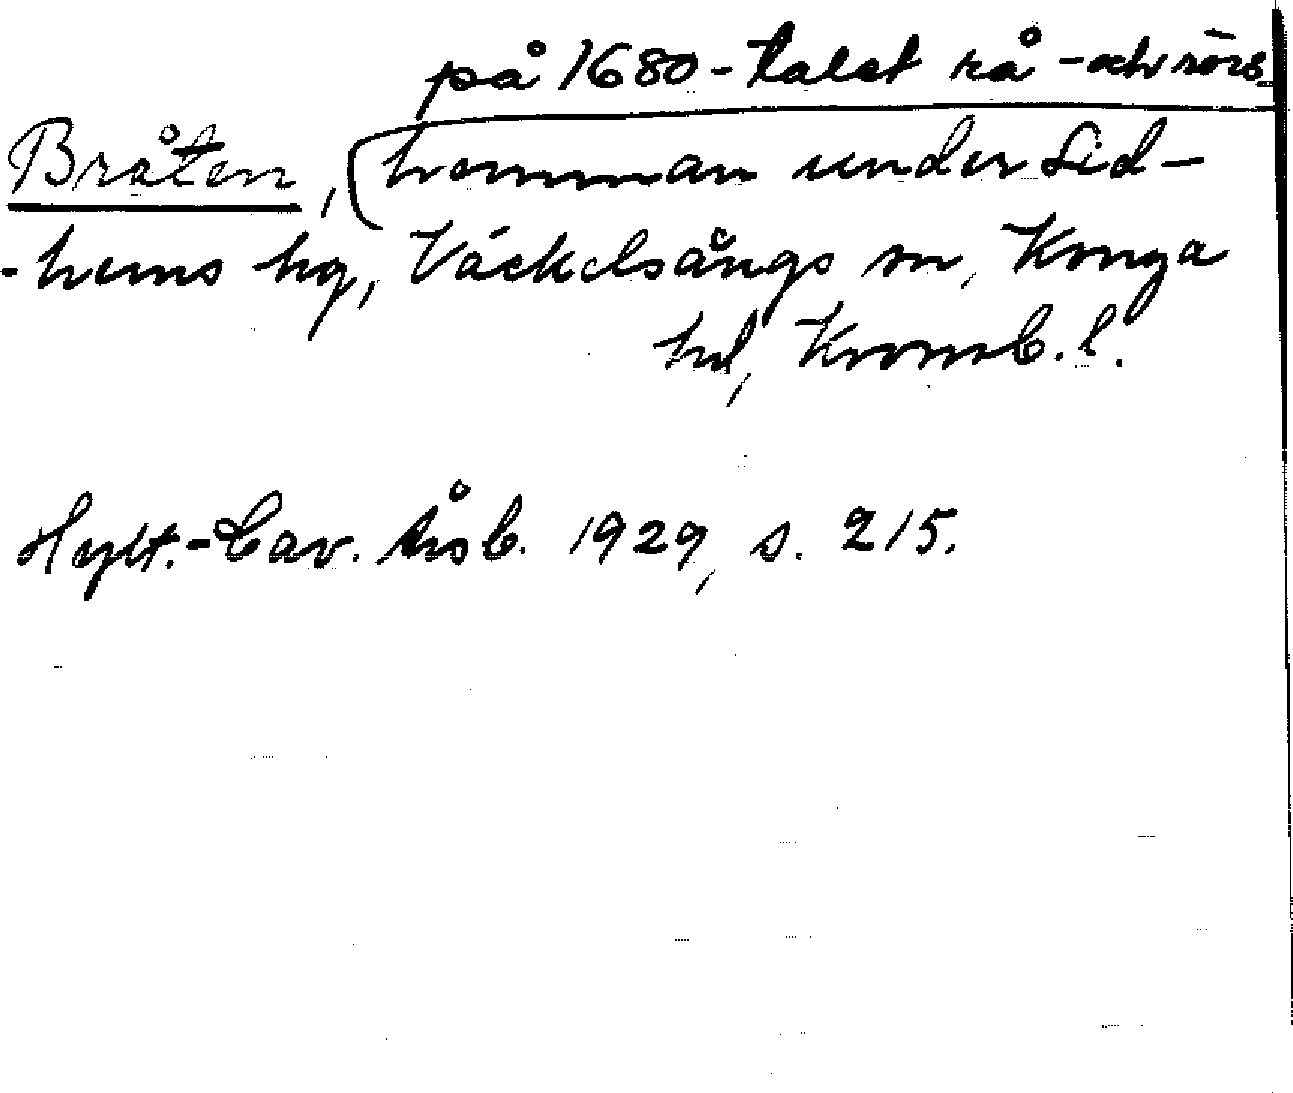 på 1680-talet rå- och rörs
Bråten, hemman under Lid-
-hems hg, Väckelsångs sn, Konga
hd, Kronob. l.
Hylt.-Cav. årsb. 1929, s. 215.